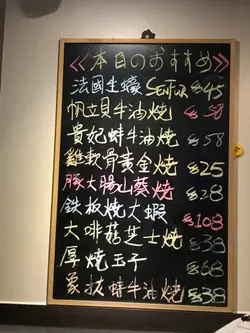 《本日のおすすめ》
法國生蠔 $45
帆立貝牛油燒 $58
貴妃蚌牛油燒 $58
雞軟骨黃金燒 $25
豚大腸山葵燒 $28
鉄板燒大蝦 $108
大啡菇芝士燒 $38
厚燒玉子 $68
象拔蚌牛油燒 $38